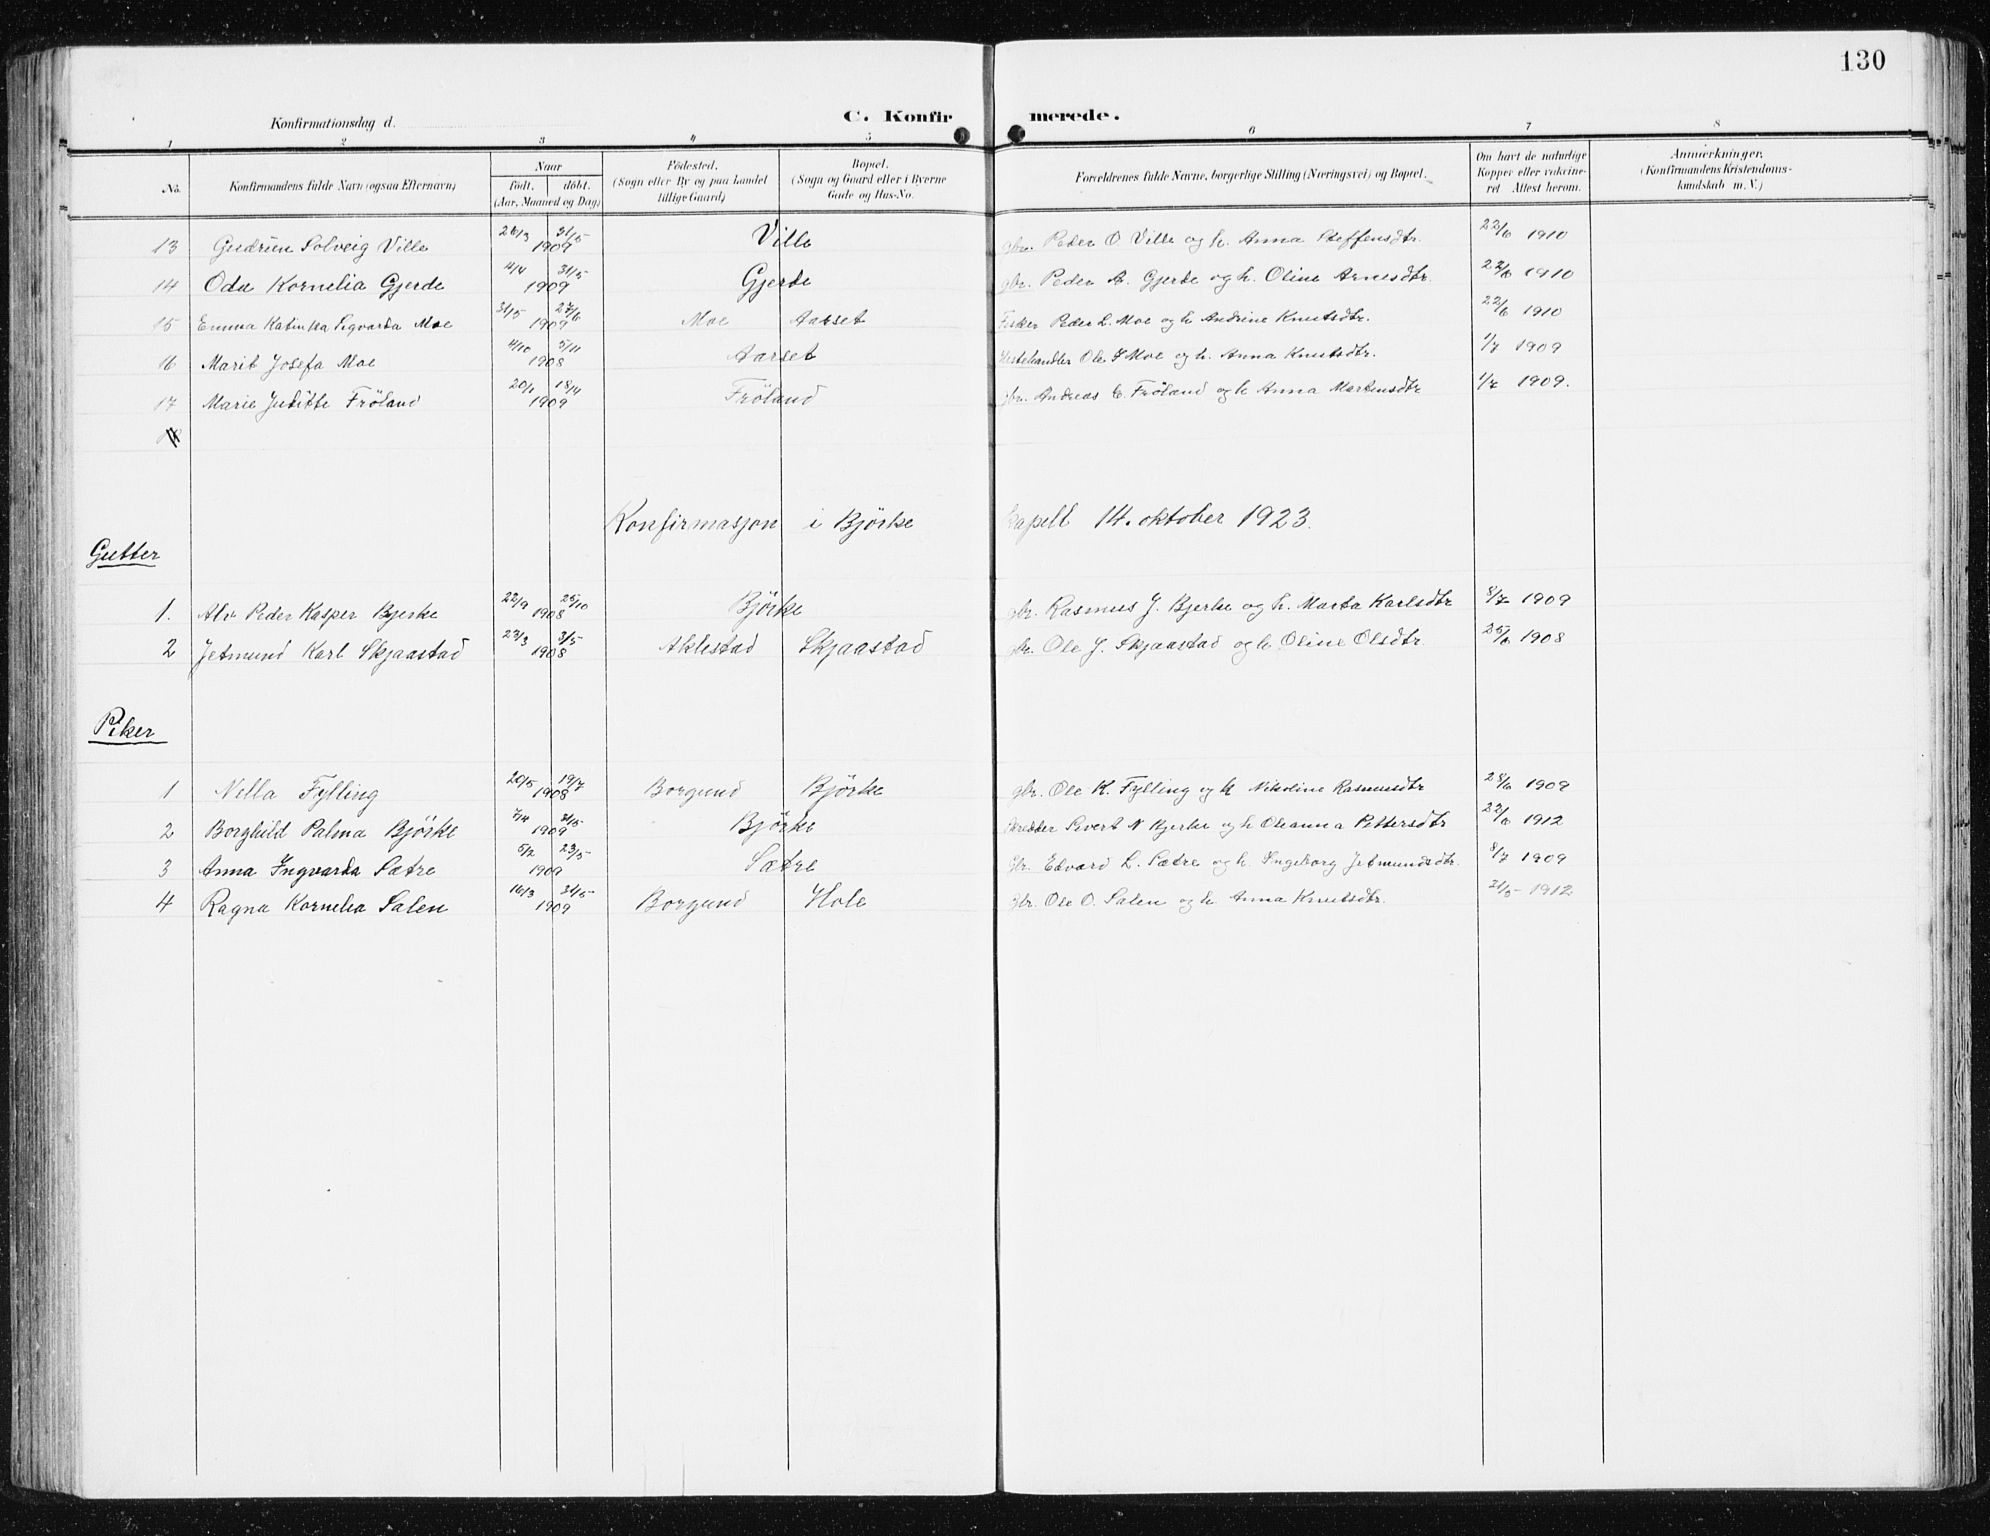 130
Konfirmationsdag d. C. Konfir merede.
1 2 3 4 5 6 7 8
No. Konfirmandens fulde Navn (ogsaa Efternavn) Naar født. døbt. (Aar, Maaned og Dag) Fødested. (Sogn eller By og paa Landet tillige Gaard) Bopæl. (Sogn og Gaard eller i Byerne Gade og Hus-No. Forældrenes fulde Navne, borgerlige Stilling (Næringsvei) og Bopæl. Om havt de naturlige Kopper eller vakcineret Attest herom. Anmerkninger. (Konfirmandens Kristendomskundskab m. V.)
13 Gudrun Solveig Ville 26/3 31/5 1909 Ville gbr. Peder O Ville og h. Anna Steffensdtr. 22/6 1910
14 Oda Kornelia Gjerde 4/4 31/5 1909 Gjerde gbr. Peder A. Gjerde og h. Oline Arnesdtr. 22/6 1910
15 Emma Katinka Sigvarda Moe 31/5 27/6 1909 Moe Aarset Fisker Peder L. Moe og h Andrine Knutsdtr. 22/6 1910
16 Marit Josefa Moe 4/10 5/11 1908 Aarset Hestehandler Ole S Moe og h. Anna Knutsdtr. 1/7 1909
17 Marie Juditte Fröland 20/1 18/4 1909 Fröland gbr. Andreas C. Fröland og h Anna Martinsdtr 1/7 1909.
Konfirmasjon i Björke kapell 14. oktober 1923.
Gutter
1. Alv Peder Kasper Bjerke 22/9 25/10 1908 Björke gbr. Rasmus J. Bjerke og h. Marta Karlsdtr 8/7 1909
2 Jetmund Karl Skjaastad 23/3 3/5 1908 Aklestad Skjaastad gbr. Ole J. Skjaastad og h Oline Olsdtr 25/6 1908
Piker
1 Nella Fylling 20/5 19/7 1908 Borgund Björke gbr. Ole K. Fylling og h Nikoline Rasmusdtr 28/6 1909
2 Borghild Palma Björke 7/4 31/5 1909 Björke Skredder Sivert N Bjerke og h Oleanna Pettersdtr 22/6 1912
3 Anna Ingvarda Sætre 5/2 23/5 1909 Sætre Gbr. Edvard L. Sætre og h. Ingeborg Jetmundsdtr. 8/7 1909
4 Ragna Kornelia Salen 16/3 31/5 1909 Borgund Hole Gbr. Ole O. Salen og h. Anna Knutsdtr. 21/5 1912